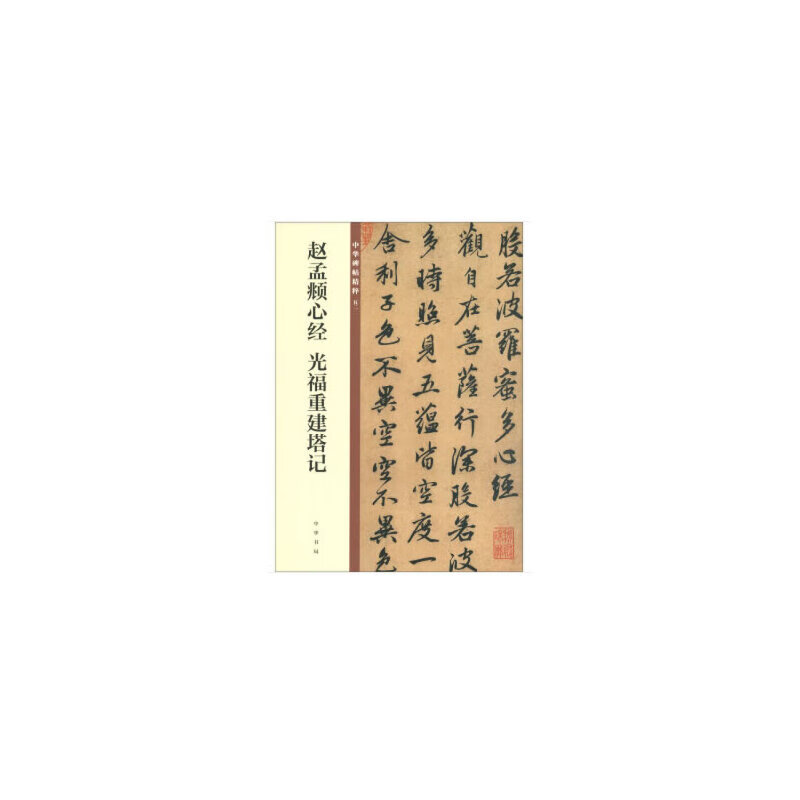 赵孟頫心经 光福重建塔记
中华书局
中华碑帖精粹
般若波羅蜜多心經
觀自在菩薩行深般若波
多時照見五蘊皆空度一
舍利子色不異空空不異色